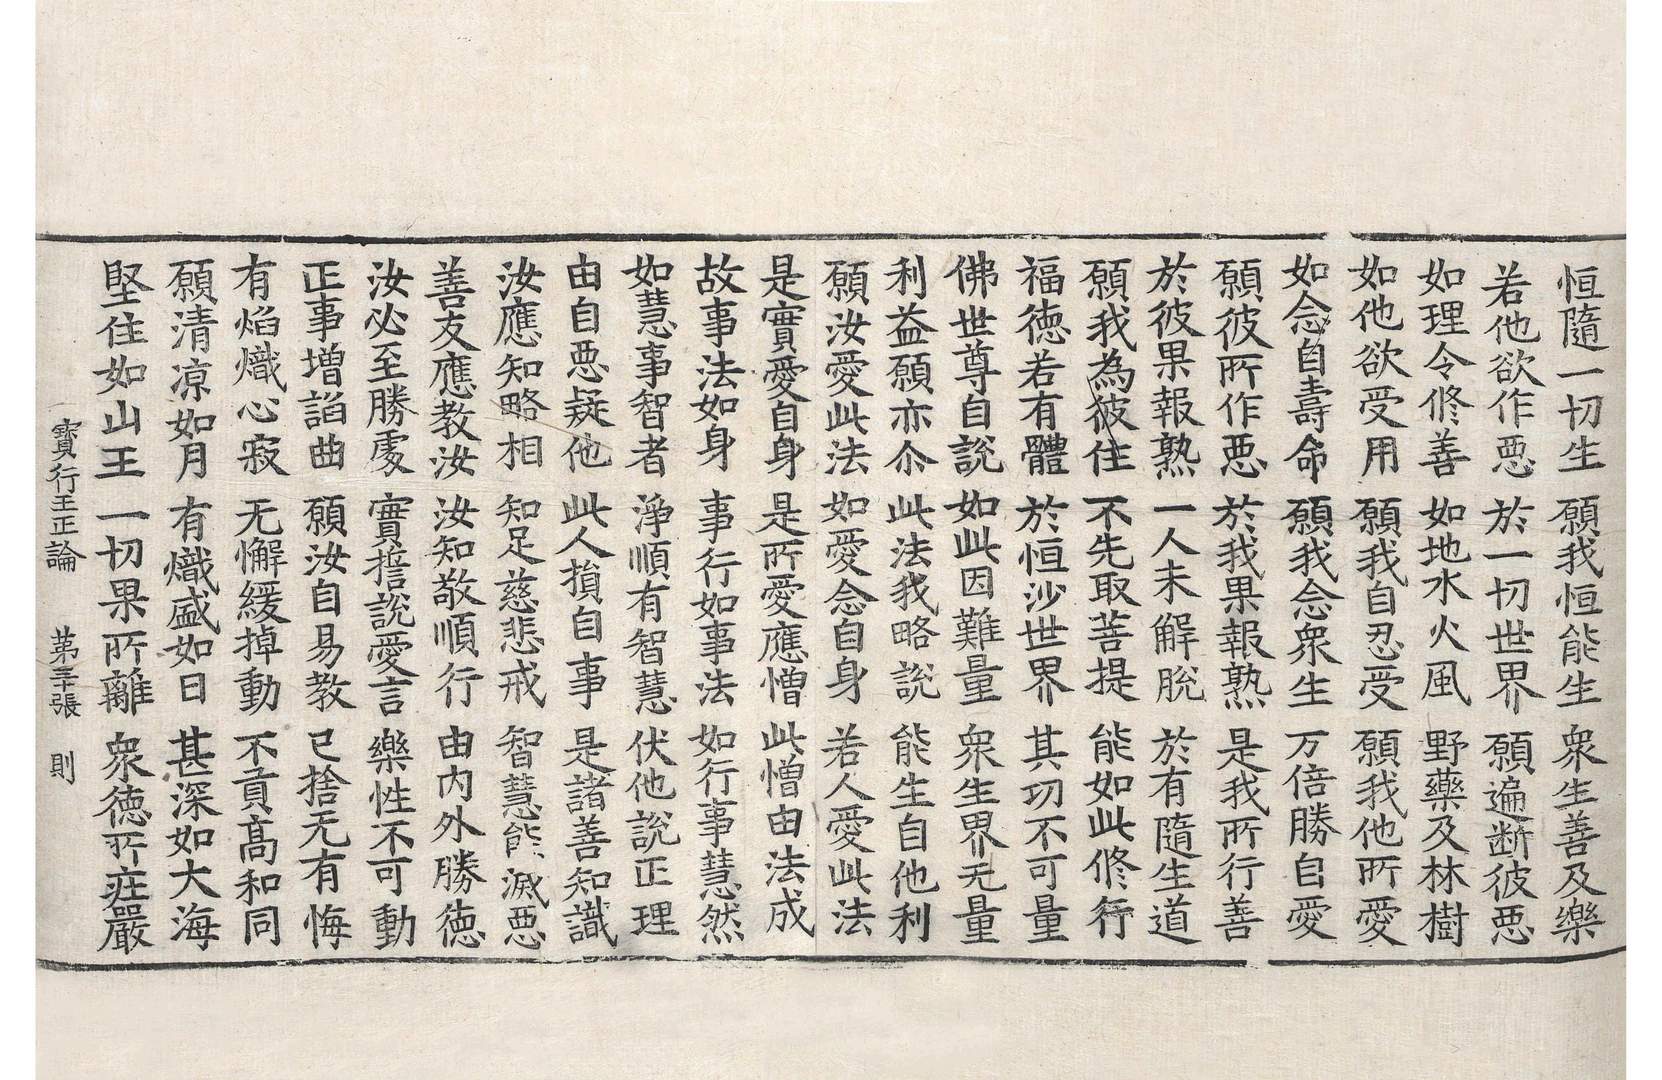 恒隨一切生　願我恒能生　衆生善及樂
若他欲作惡　於一切世界　願遍断彼惡
如理令修善　如地水火風　野藥及林樹
如他欲受用　願我自忍受　願我他所愛
如念自壽命　願我念衆生　万倍勝自愛
願彼所作惡　於我果報熟　是我所行善
於彼果報熟　一人未解脫　於有隨生道
願我為彼住　不先取菩提　能如此修行
福德若有體　於恒沙世界　其功不可量
佛世尊自說　如此因難量　衆生界无量
利益願亦尒　此法我略說　能生自他利
願汝愛此法　如愛念自身　若人愛此法
是實愛自身　是所愛應憎　此憎由法成
故事法如身　事行如事法　如行事慧然
如慧事智者　淨順有智慧　伏他說正理
由自惡疑他　此人損自事　是諸善知識
汝應知略相　知足慈悲戒　智慧能滅惡
善友應教汝　汝知敬順行　由内外勝德
汝必至勝處　實語說愛言　樂性不可動
正事增諂曲　願汝自易教　已捨无有悔
有焰熾心寂　无懈緩掉動　不貢高和同
願清凉如月　有熾盛如日　甚深如大海
堅住如山王　一切果所離　衆德所莊嚴
寳行王正論　第三十張　則